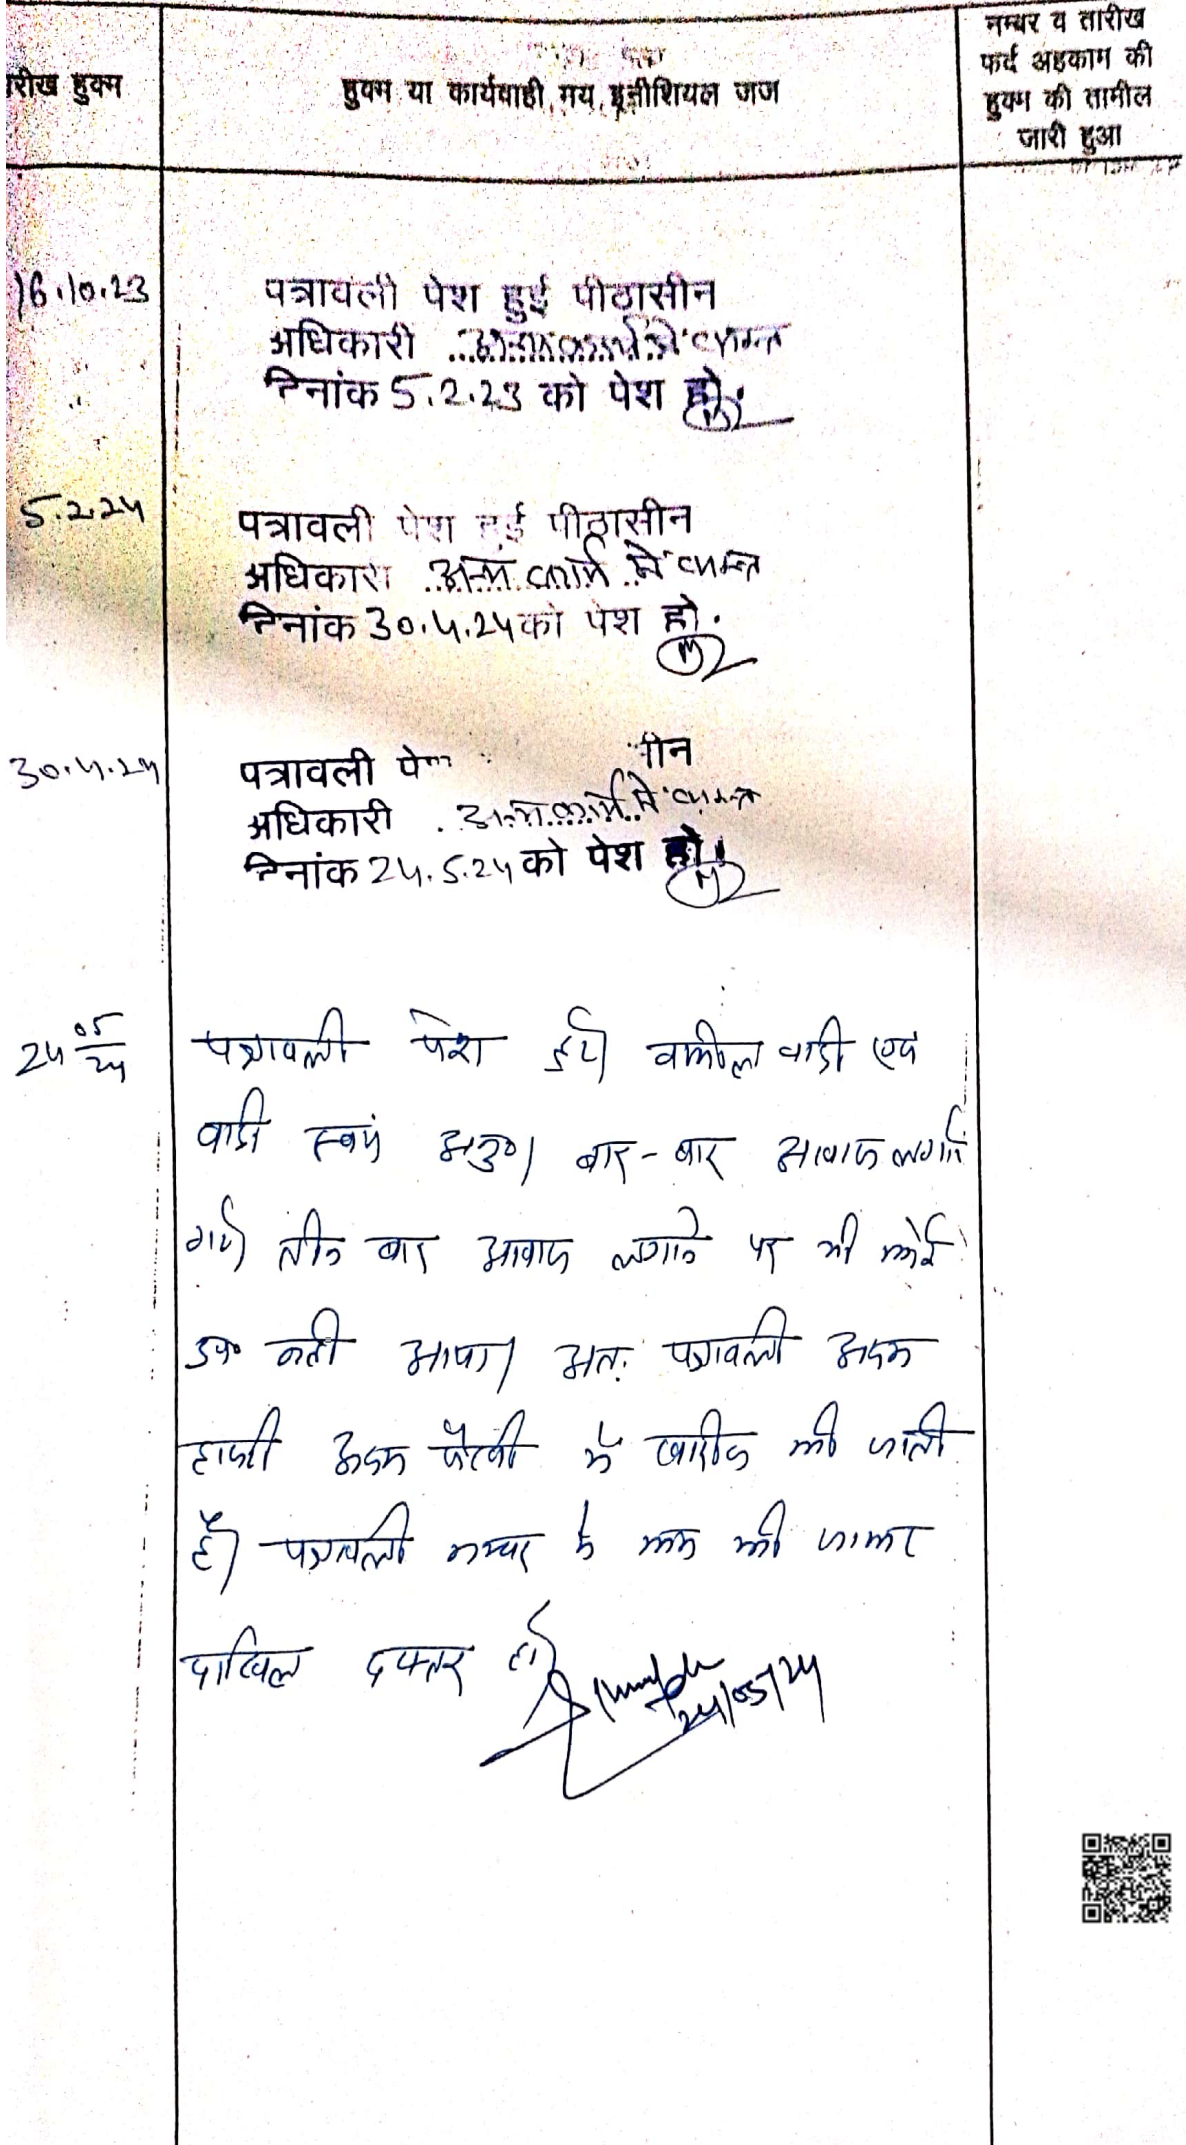 रीख हुक्म
हुक्म या कार्यवाही मय इनीशियल जज
नम्बर व तारीख
फर्द अहकाम की
हुक्म की तामील
जारी हुआ
16.10.23
पत्रावली पेश हुई पीठासीन
अधिकारी अन्य कार्य में व्यस्त
दिनांक 5.2.23 को पेश हो.
5.2.24
पत्रावली पेश हुई पीठासीन
अधिकारी अन्य कार्य में व्यस्त
दिनांक 30.4.24 को पेश हो.
30.4.24
पत्रावली पे सीन
अधिकारी अन्य कार्य में व्यस्त
दिनांक 24.5.24 को पेश हो.
24 05/24
पत्रावली पेश हुई। वकील वादी एवं
वादी स्वयं अनु०। बार-बार आवाज लगाई
गई। तीन बार आवाज लगाने पर भी कोई
उप० नही आया। अतः पत्रावली अदम
हाजरी अदम पैरवी में खारीज की जाती
है। पत्रावली नम्बर से कम की जाकर
दाखिल दफ्तर हो।
24/05/24